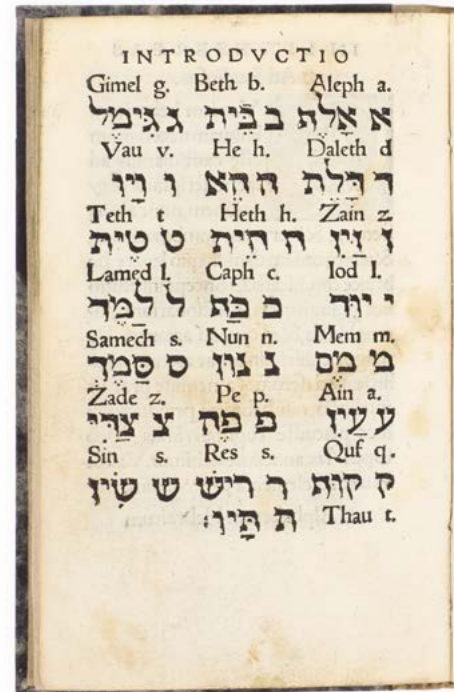 INTRODVCTIO
Gimel g. Beth b. Aleph a.
א אָלֶת ב בֵּית ג גִּימֶל
Vau v. He h. Daleth d
ד דָּלֶת ה הֵהא ו וָיו
Teth t Heth h. Zain z.
ז זַיִן ח חֵית ט טֵית
Lamed l. Caph c. Iod I.
י יוֹד כ כַּף ל לָמֶד
Samech s. Nun n. Mem m.
מ מֵם נ נוּן ס סָמֶך
Zade z. Pe p. Ain a.
ע עַיִן פ פֵה צ צָדֵי
Sin s. Res s. Quf q.
ק קוֹף ר רֵישׁ ש שִׁין
ת תָּיו׃ Thau t.